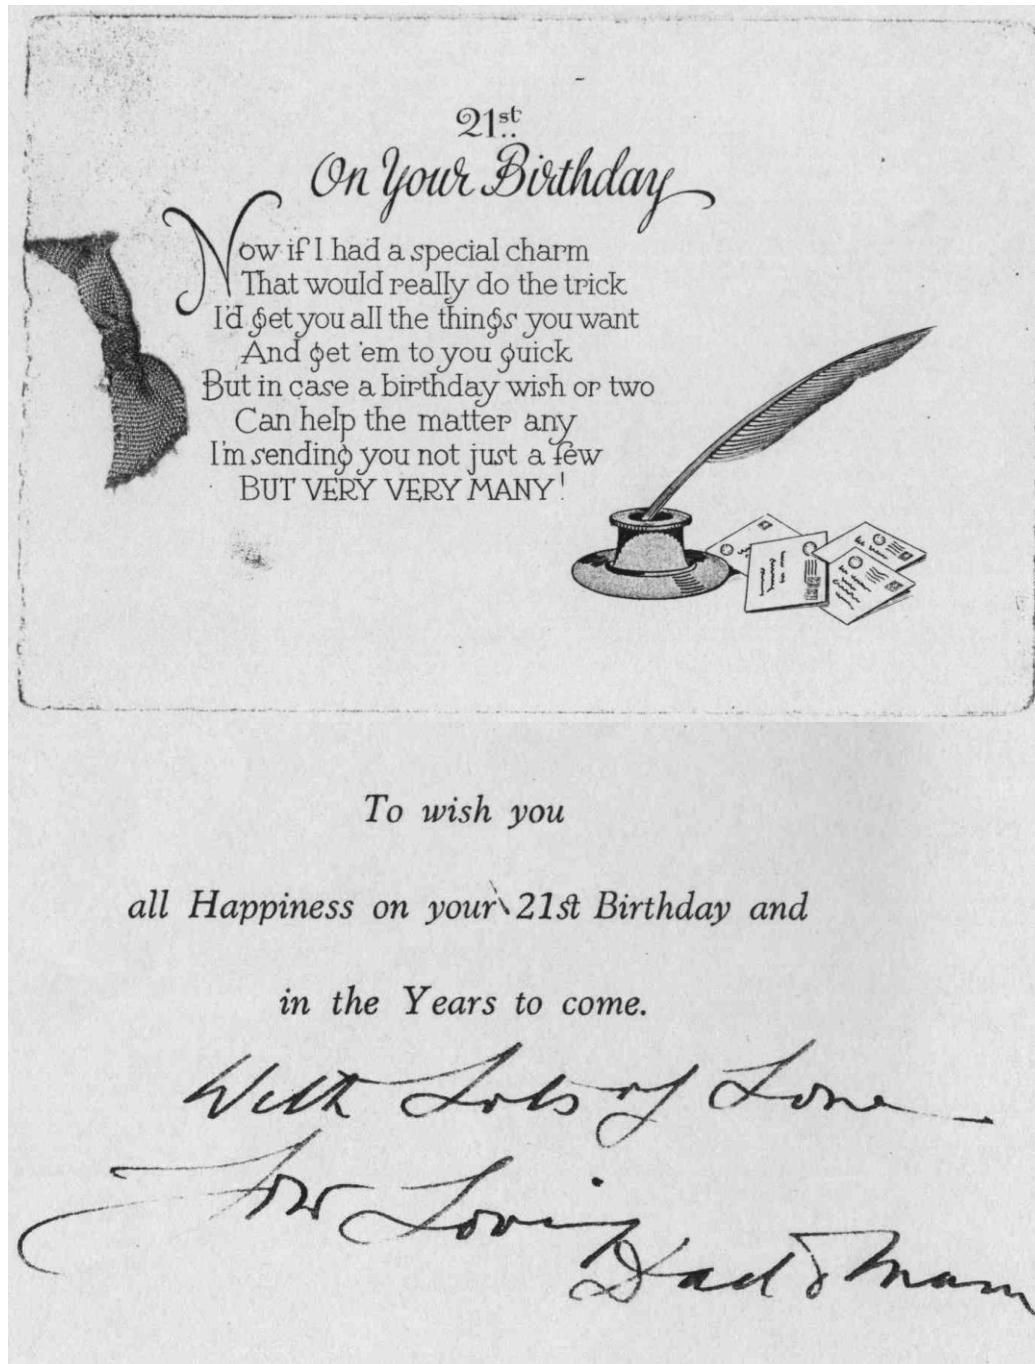 21st
On Your Birthday
Now if I had a special charm
That would really do the trick
I'd get you all the things you want
And get 'em to you quick
But in case a birthday wish or two
Can help the matter any
I'm sending you not just a few
BUT VERY VERY MANY!
To wish you
all Happiness on your 21st Birthday and
in the Years to come.
With Lots of Love
Loving
Dad & Mam